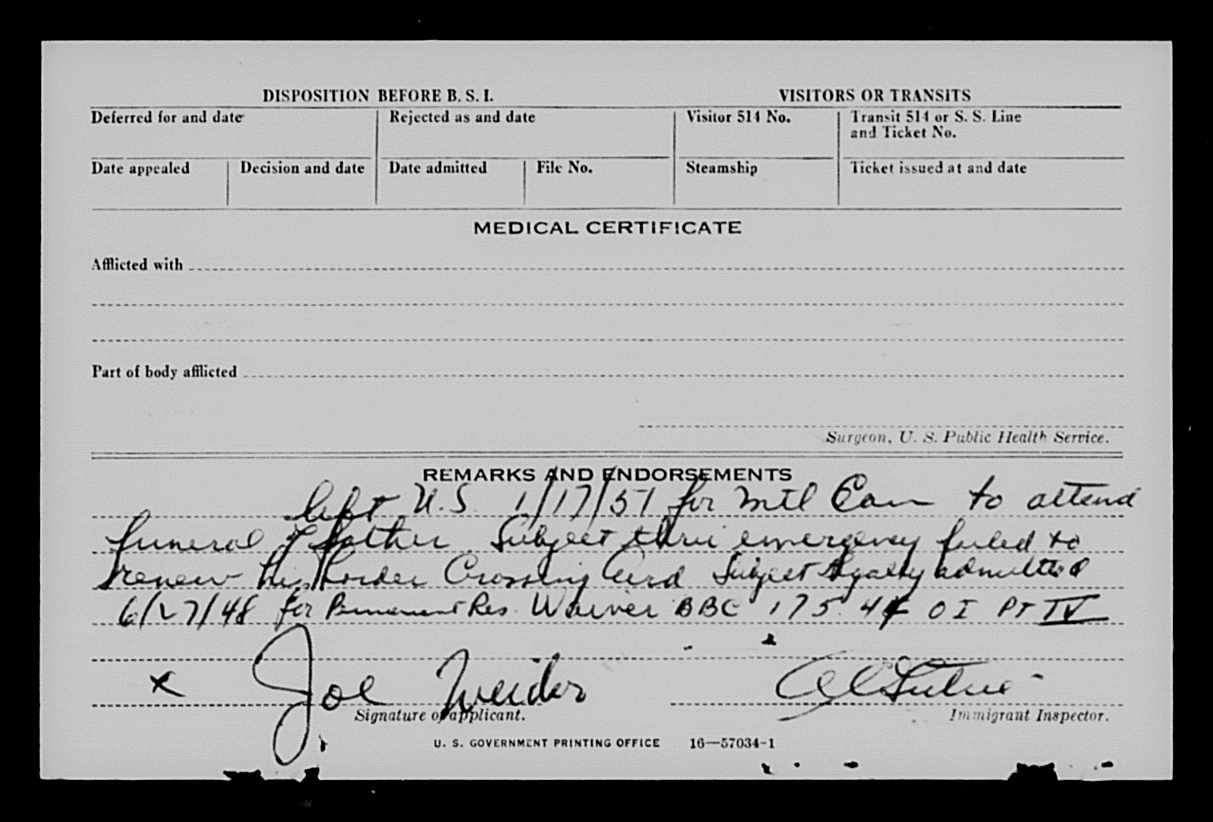 DISPOSITION BEFORE B. S. I. VISITORS OR TRANSITS
Deferred for and date Rejected as and date Visitor 514 No. Transit 514 or S. S. Line
and Ticket No.
Date appealed Decision and date Date admitted File No. Steamship Ticket issued at and date
MEDICAL CERTIFICATE
Afflicted with
Part of body afflicted
Surgeon, U. S. Public Health Service.
REMARKS AND ENDORSEMENTS
left U.S. 1/17/51 for Mtl Can to attend
funeral of father Subject thru emergency failed to
renew his Border Crossing Card Subject legally admitted
6/27/48 for Permanent Res. Waiver BBC 175 OI PT IV
x Joe Weider
Signature of applicant. Immigrant Inspector.
U. S. GOVERNMENT PRINTING OFFICE 16—57034-1